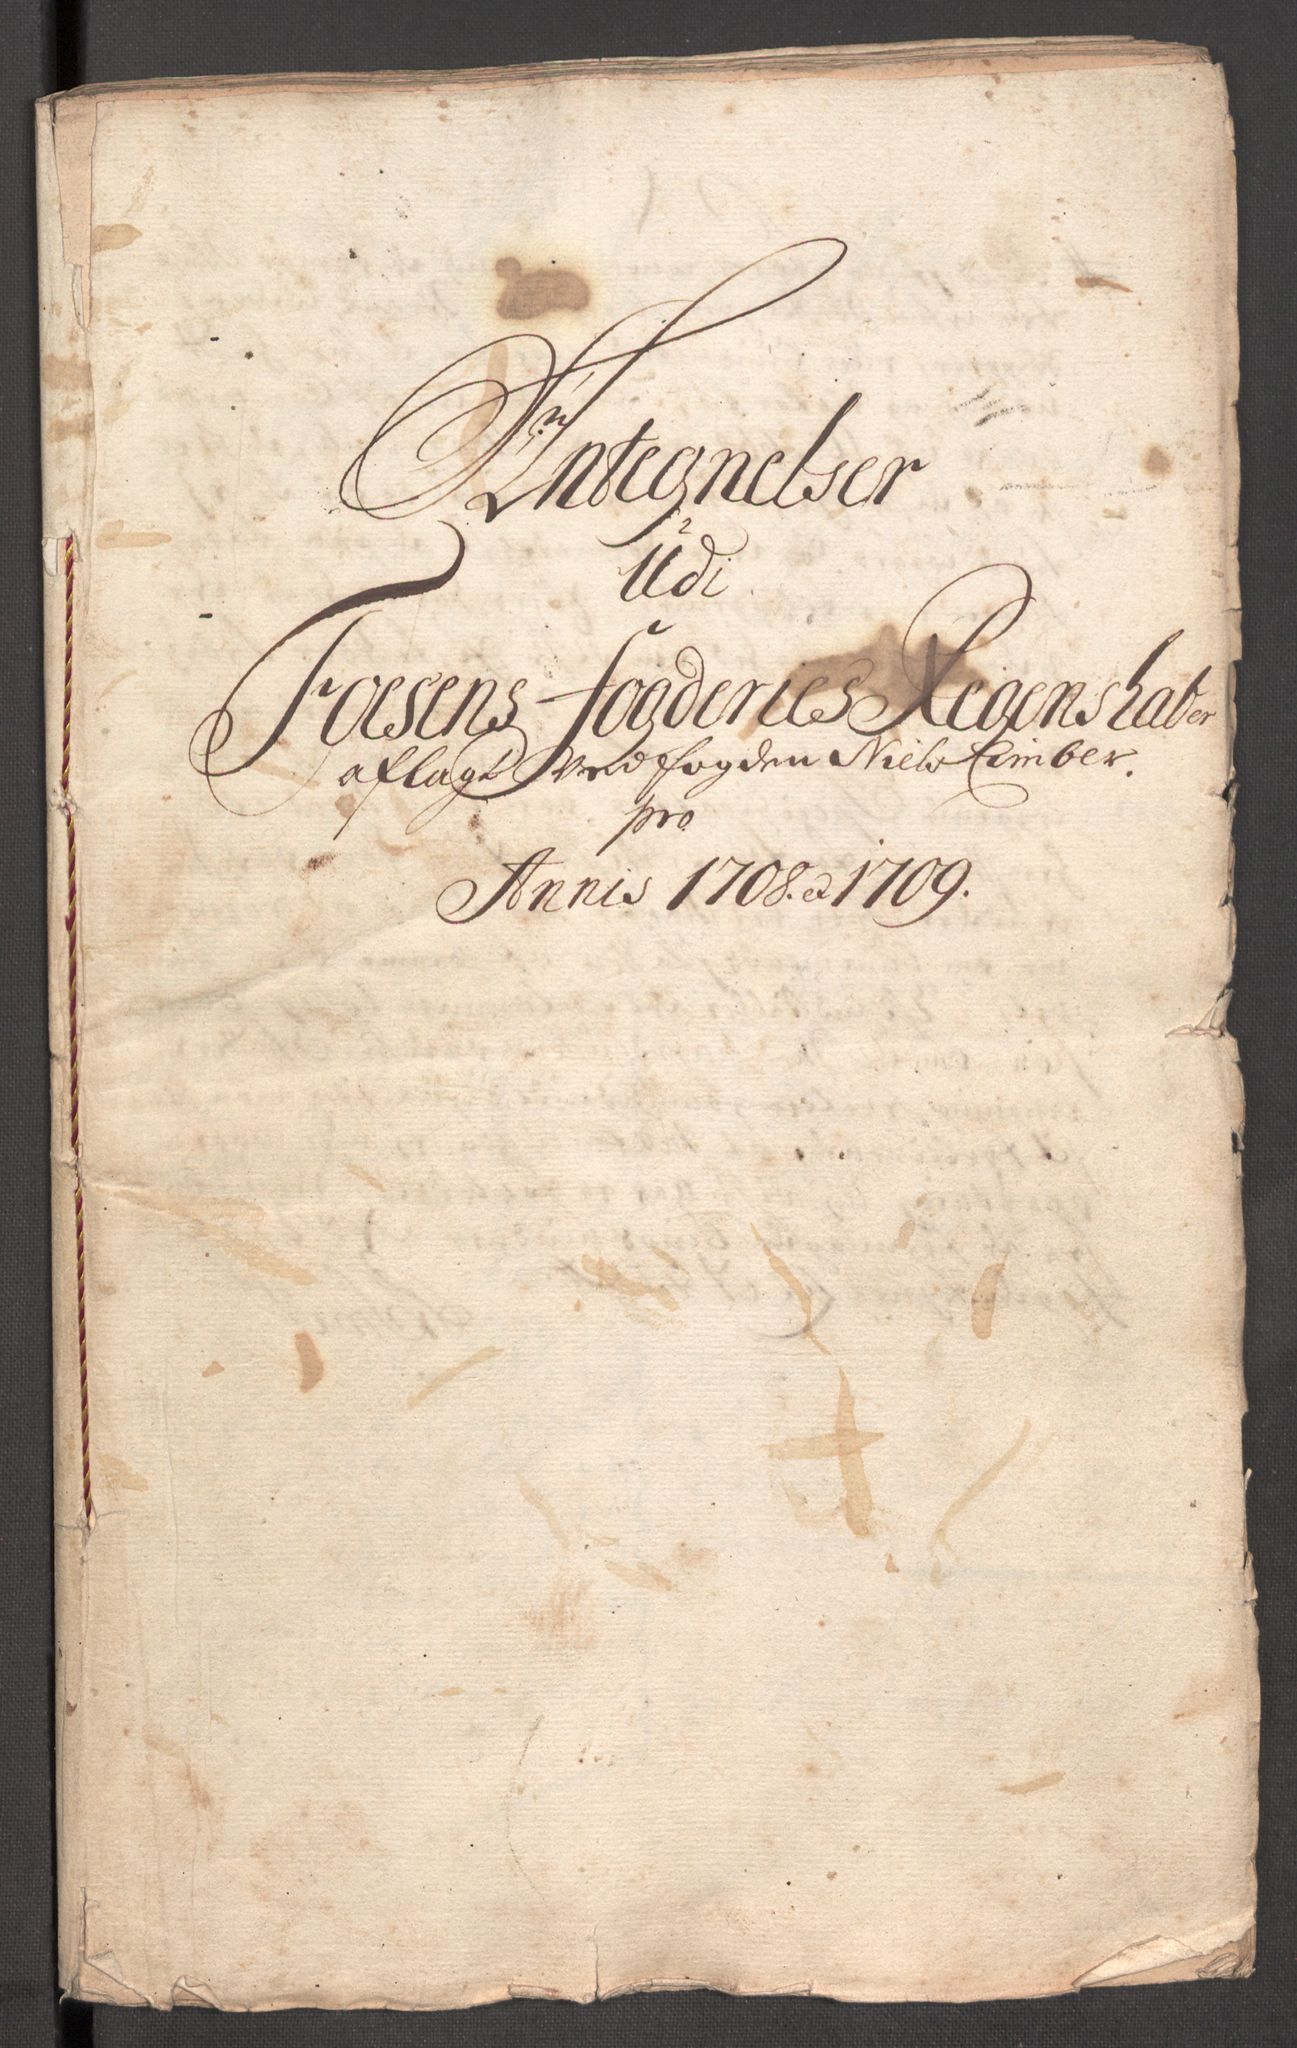 Antegnelser
Udi
Foesens fogderies Regenskaber
aflagt ved fogden Niels Cimber.
pro
Annis 1708. et 1709.